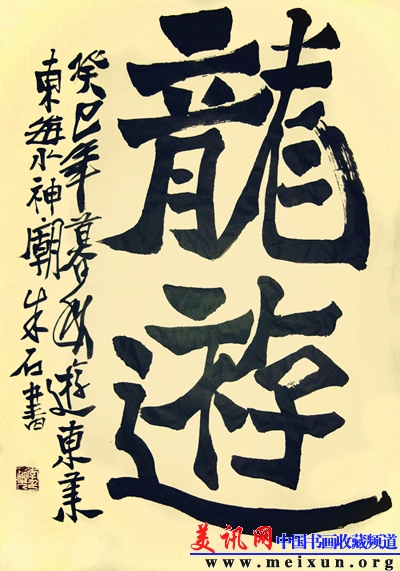 龍遊
癸巳年暮春遊東萊
東海水神廟朱石書
美讯网 中国书画收藏频道
www.meixun.org